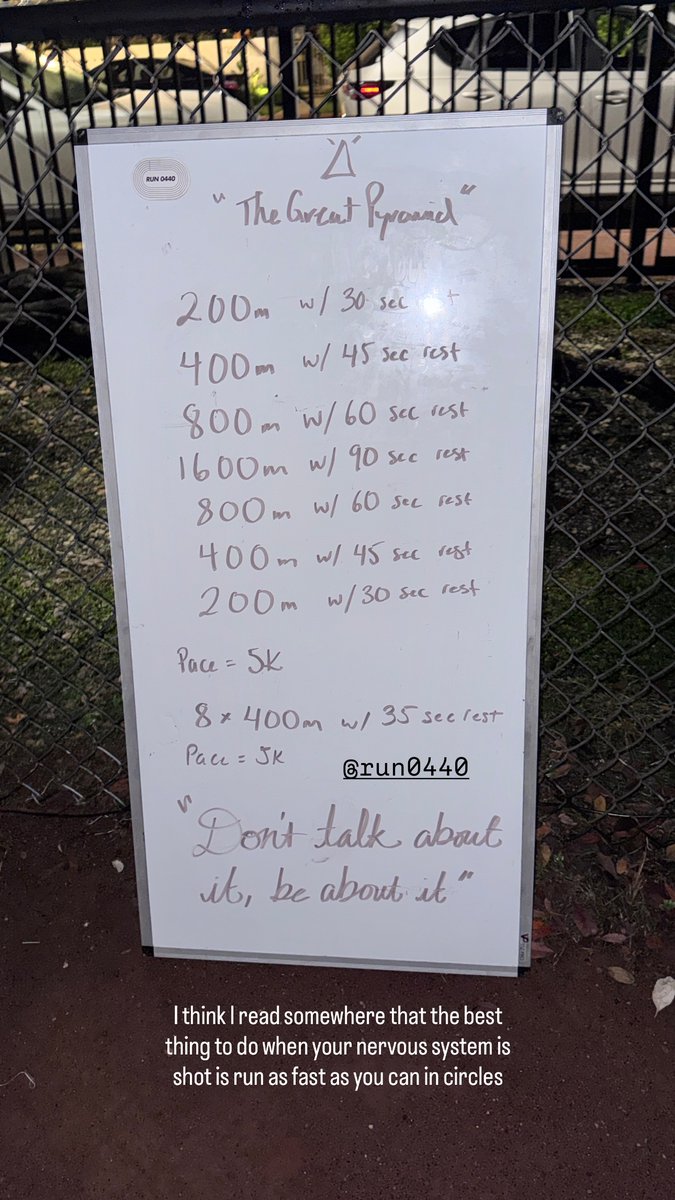 RUN 0440
"The Great Pyramid"
200m w/ 30 sec
400m w/ 45 sec rest
800m w/ 60 sec rest
1600m w/ 90 sec rest
800m w/ 60 sec rest
400m w/ 45 sec rest
200m w/30 sec rest
Pace = 5K
8 x 400m w/ 35 sec rest
Pace = 5K
@run0440
"Don't talk about
it, be about it"
I think I read somewhere that the best
thing to do when your nervous system is
shot is run as fast as you can in circles